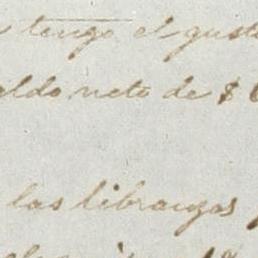 tengo el gusto
eldo neto de $
las libranzas